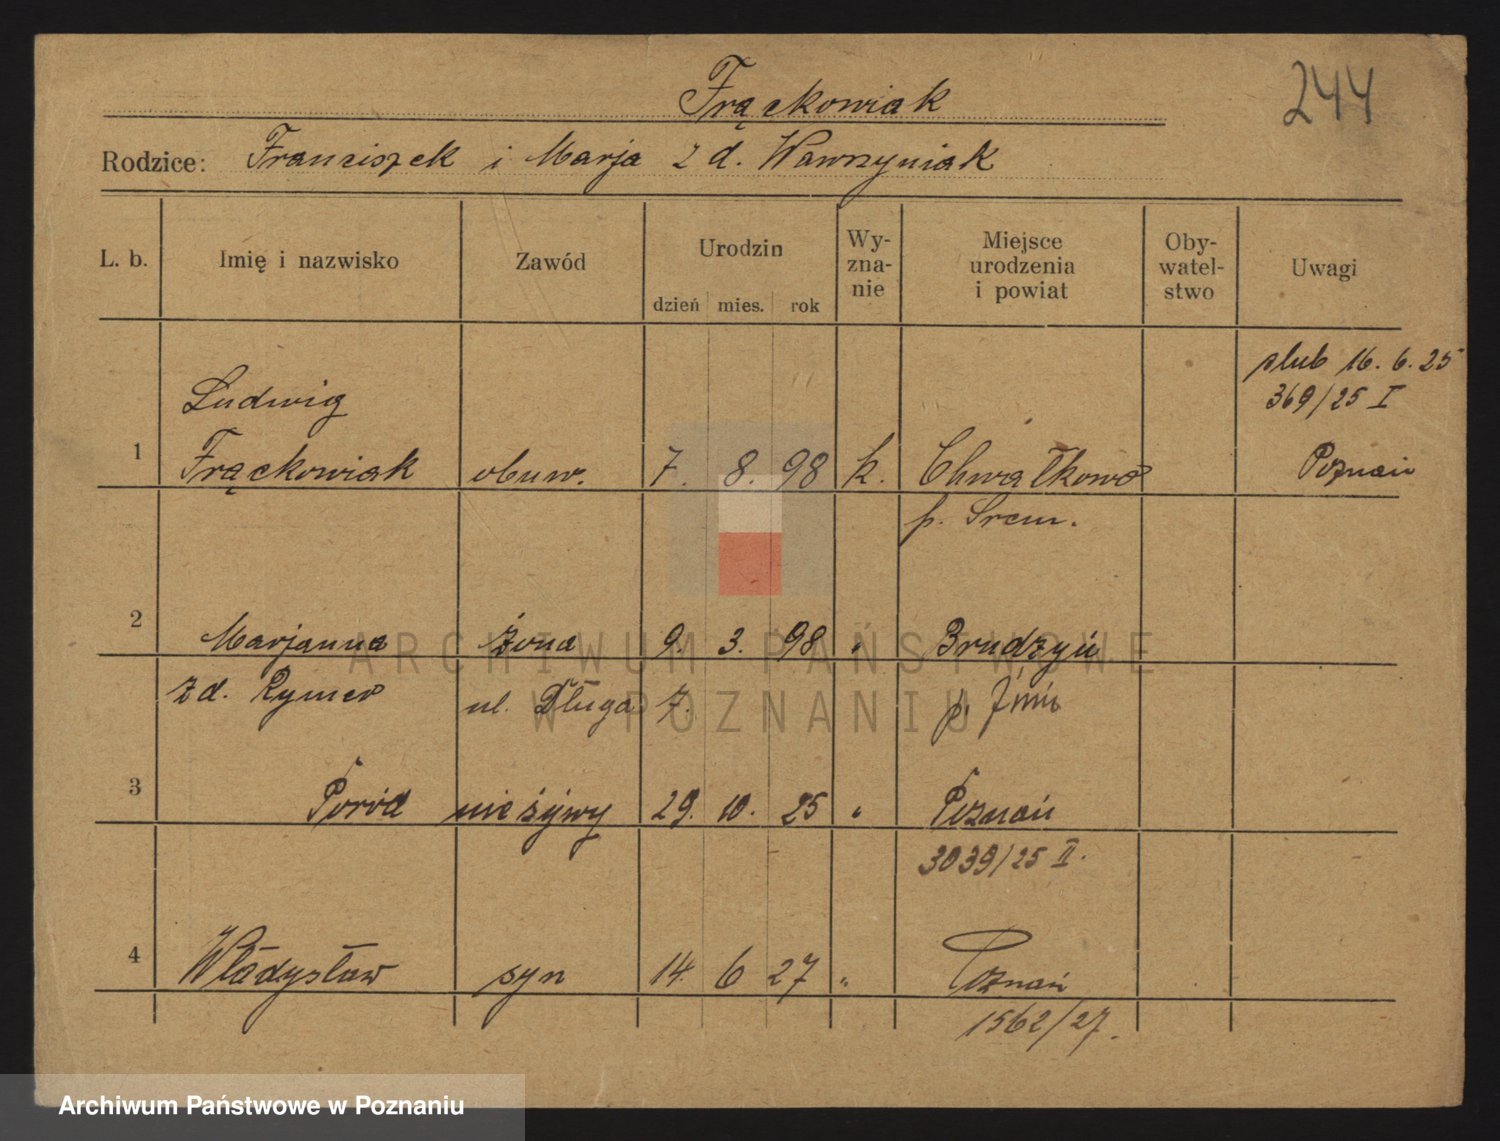 Frąckowiak
244
Rodzice: Franciszek i Marja z d. Wawrzyniak
L. b.
Imię i nazwisko
Zawód
Urodzin
dzień mies. rok
Wy-
zna-
nie
Miejsce
urodzenia
i powiat
Oby-
watel-
stwo
Uwagi
ślub 16. 6. 25
369/25 I
Poznań
Ludwig
1 Frąckowiak obuw. 7. 8. 98 k. Chwałkowo
p. Śrem.
2 Marjanna żona 9. 3. 98 " Brudzyń
z d. Rymer ul. Długa 7. p. Żnin
3 Poród nieżywy 29. 10. 25 " Poznań
3039/25 II.
4 Władysław syn 14. 6 27 " Poznań
1562/27.
ARCHIWUM PAŃSTWOWE
W POZNANIU
Archiwum Państwowe w Poznaniu